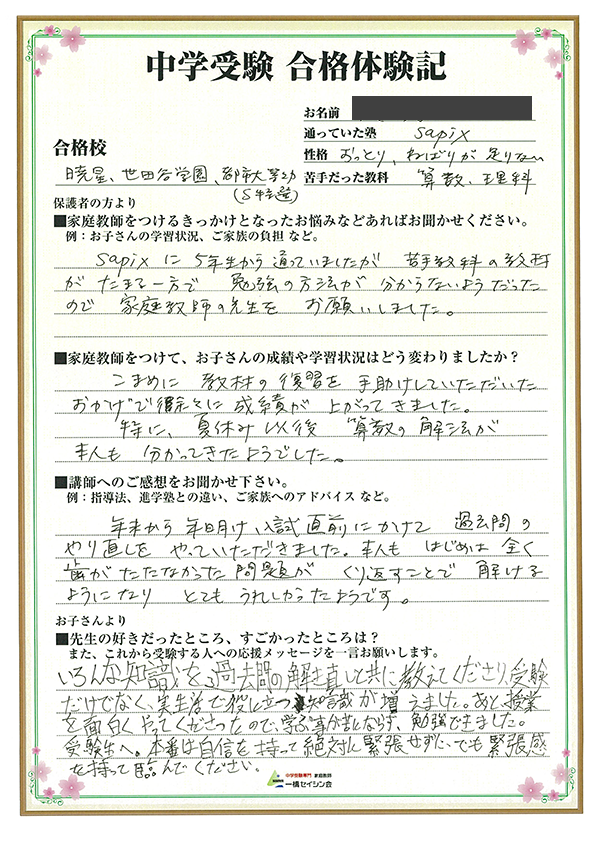 中学受験 合格体験記
お名前
通っていた塾 sapix
合格校
性格 おっとり、ねばりが足りない
暁星、世田谷学園、都市大等々力
(S特選)
苦手だった教科 算数、理科
保護者の方より
■家庭教師をつけるきっかけとなったお悩みなどあればお聞かせください。
例：お子さんの学習状況、ご家族の負担 など。
sapixに5年生から通っていましたが 苦手教科の教材
がたまる一方で 勉強の方法が 分からないようだった
ので 家庭教師の先生を お願いしました。
■家庭教師をつけて、お子さんの成績や学習状況はどう変わりましたか？
こまめに 教材の復習を 手助けしていただいた
おかげで徐々に 成績が 上がってきました。
特に、夏休み以後 算数の解法が
本人も 分かってきたようでした。
■講師へのご感想をお聞かせ下さい。
例：指導法、進学塾との違い、ご家族へのアドバイス など。
年末から 年明け 入試直前にかけて 過去問の
やり直しを やっていただきました。本人も はじめは 全く
歯が たたなかった 問題が くり返すことで 解ける
ようになり とても うれしかったようです。
お子さんより
■先生の好きだったところ、すごかったところは？
また、これから受験する人への応援メッセージを一言お願いします。
いろんな知識を過去問の解き直しと共に教えてくださり、受験
だけでなく、実生活で役に立つ知識が増えました。あと、授業
を面白くやってくださったので、学ぶ事が苦にならず、勉強できました。
受験生へ。本番は自信を持って絶対に緊張せずに、でも緊張感
を持って臨んでください。
中学受験専門 家庭教師
一橋セイシン会